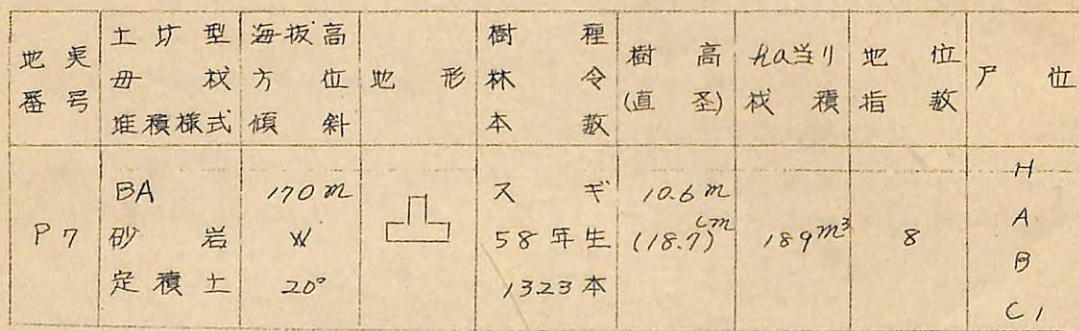 地番 実号
土圤型 母材 堆積様式
海抜高 方位 傾斜
地形
樹種 林令 本数
樹高 (直圣)
ha当り 材積
地位 指数
戸位
P7
BA
砂岩
定積土
170m
W
20°
スギ
58年生
1323本
10.6m
(18.7)cm
189m³
8
H
A
B
C1